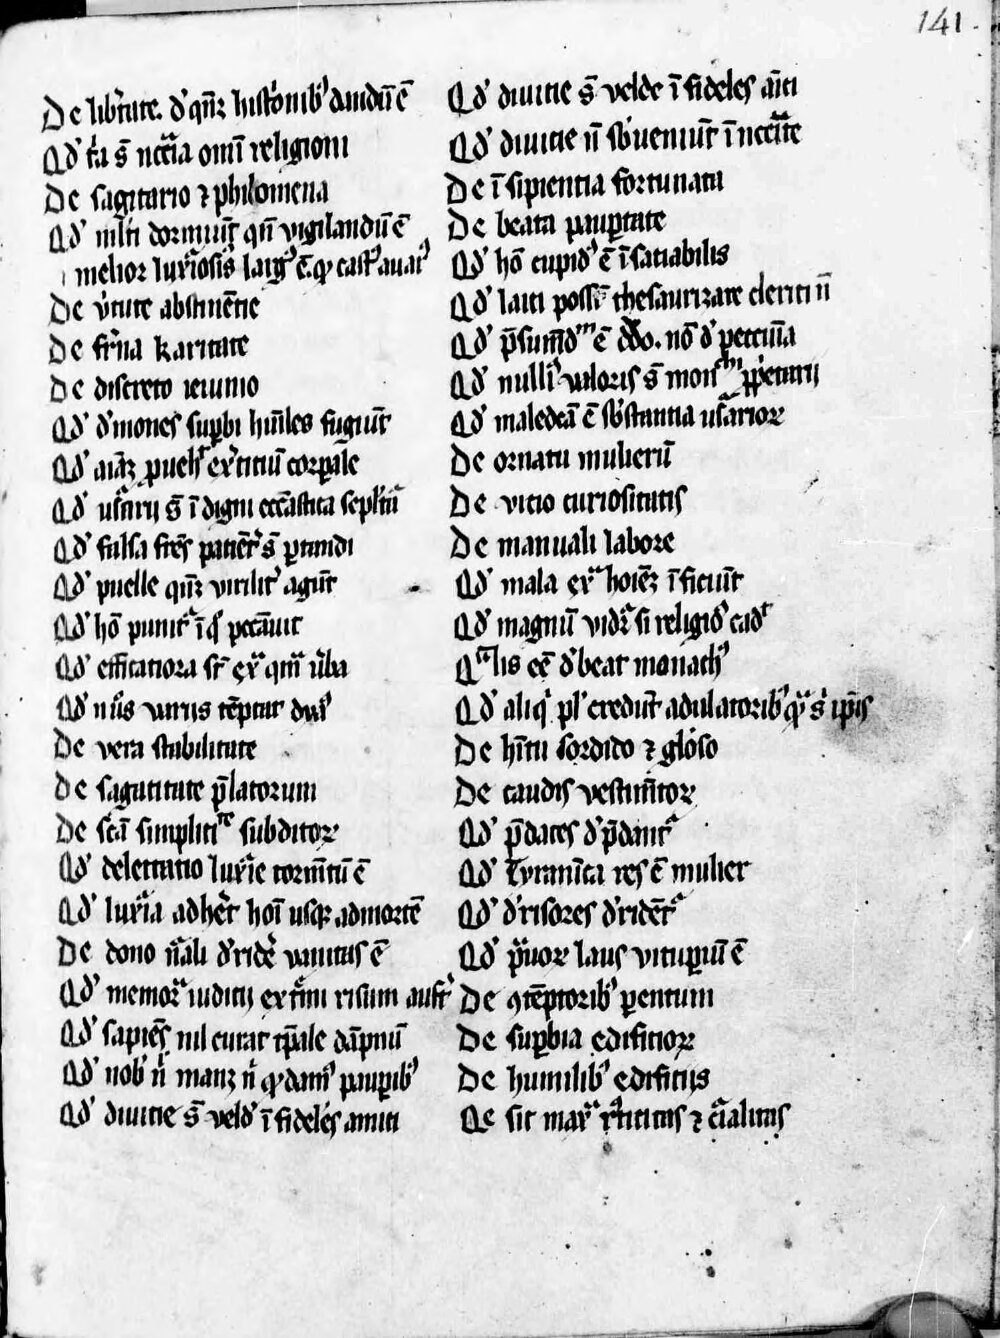 141
De lib͛tate. ꝺ' qn̄ꝫ histͦionibꝰ dandū ē
Qꝺ' t͛a s̄ ncc̄ia om̄i religioni
De sagitario ⁊ philomena
Qꝺ' dormiūt͛ qn̄ vigilandū ē
melior luxͥosis largꝰ ē ꝙ castꝰ auarꝰ
De v͛tute abstinētie
De fr̄na karitate
De discreto ieiunio
Qꝺ' ꝺ'mones suꝑbi hūiles fugiūt
Qꝺ' aīaꝫ ex͛titiū corꝑale
Qꝺ' usͣrij s̄ īdigni ecc̄astica sepltͣ
Qꝺ' falsa fr̄es s̄
Qꝺ' puelle qn̄ꝫ virilit͛ agūt
Qꝺ' hō punit͛ ī qͦ peccāuit
Qꝺ' efficatiora st̄ exͣ qm̄ v͛ba
Qꝺ' uarijs tēptat͛
De vera stabilitate
De sagatitate p̄latorum
De sc̄a simplitite subditoꝝ
Qꝺ' delectatio luxͥie tormt̄ū ē
Qꝺ' luxͥia adher͛ hoī usqꝫ ad mortē
De dono ꝺ'riꝺe͛ uanitas ē
Qꝺ' memorͣ iuditij ext͛mi risum auft͛
Qꝺ' sapiēs nil curat tp̄ale dāpnū
Qꝺ' nobꝭ n̄ manꝫ n̄ ꝙ damꝰ pauꝑibꝰ
Qꝺ' diuitie s̄ velꝺ' īfideles amici
Qꝺ' diuitie s̄ velde īfideles am̄ci
Qꝺ' diuitie n̄ sb̓ueniūt ī ncc̄itate
De īsipientia fortunata
De beata pauꝑtate
Qꝺ' hō cupidꝰ ē īsatiabilis
Qꝺ' laici possēt thesaurizare clerici n̄
Qꝺ' p̄sumꝺ'm ē deo. nō ꝺ' peccunia
Qꝺ' nulliꝰ ualoris s̄
Qꝺ' maledc̄a ē sb̓stantia usͣrioꝝ
De ornatu mulierū
De vicio curiositatis
De manuali labore
Qꝺ' mala exͣ hoīeꝫ īficiūt
Qꝺ' magnū vidr͛ si religioꝰ cadat
Qͣlis eē ꝺ'beat monachꝰ
Qꝺ' aliqͥ plꝰ credūt adulatoribꝰ qͣ sͥ ip̄is
De hītu sordido ⁊ glͦoso
De caudis vestimn̄toꝝ
Qꝺ' p̄dātes ꝺ'p̄danr͛
Qꝺ' tyrānica res ē mulier
Qꝺ' ꝺ'risores ꝺ'riꝺēr͛
Qꝺ' p̄uoꝝ laus vituꝑiū ē
De ꝯtēptoribꝰ ꝑentum
De suꝑbia edifitioꝝ
De humilibꝰ edifitijs
⁊ c̄ialitas